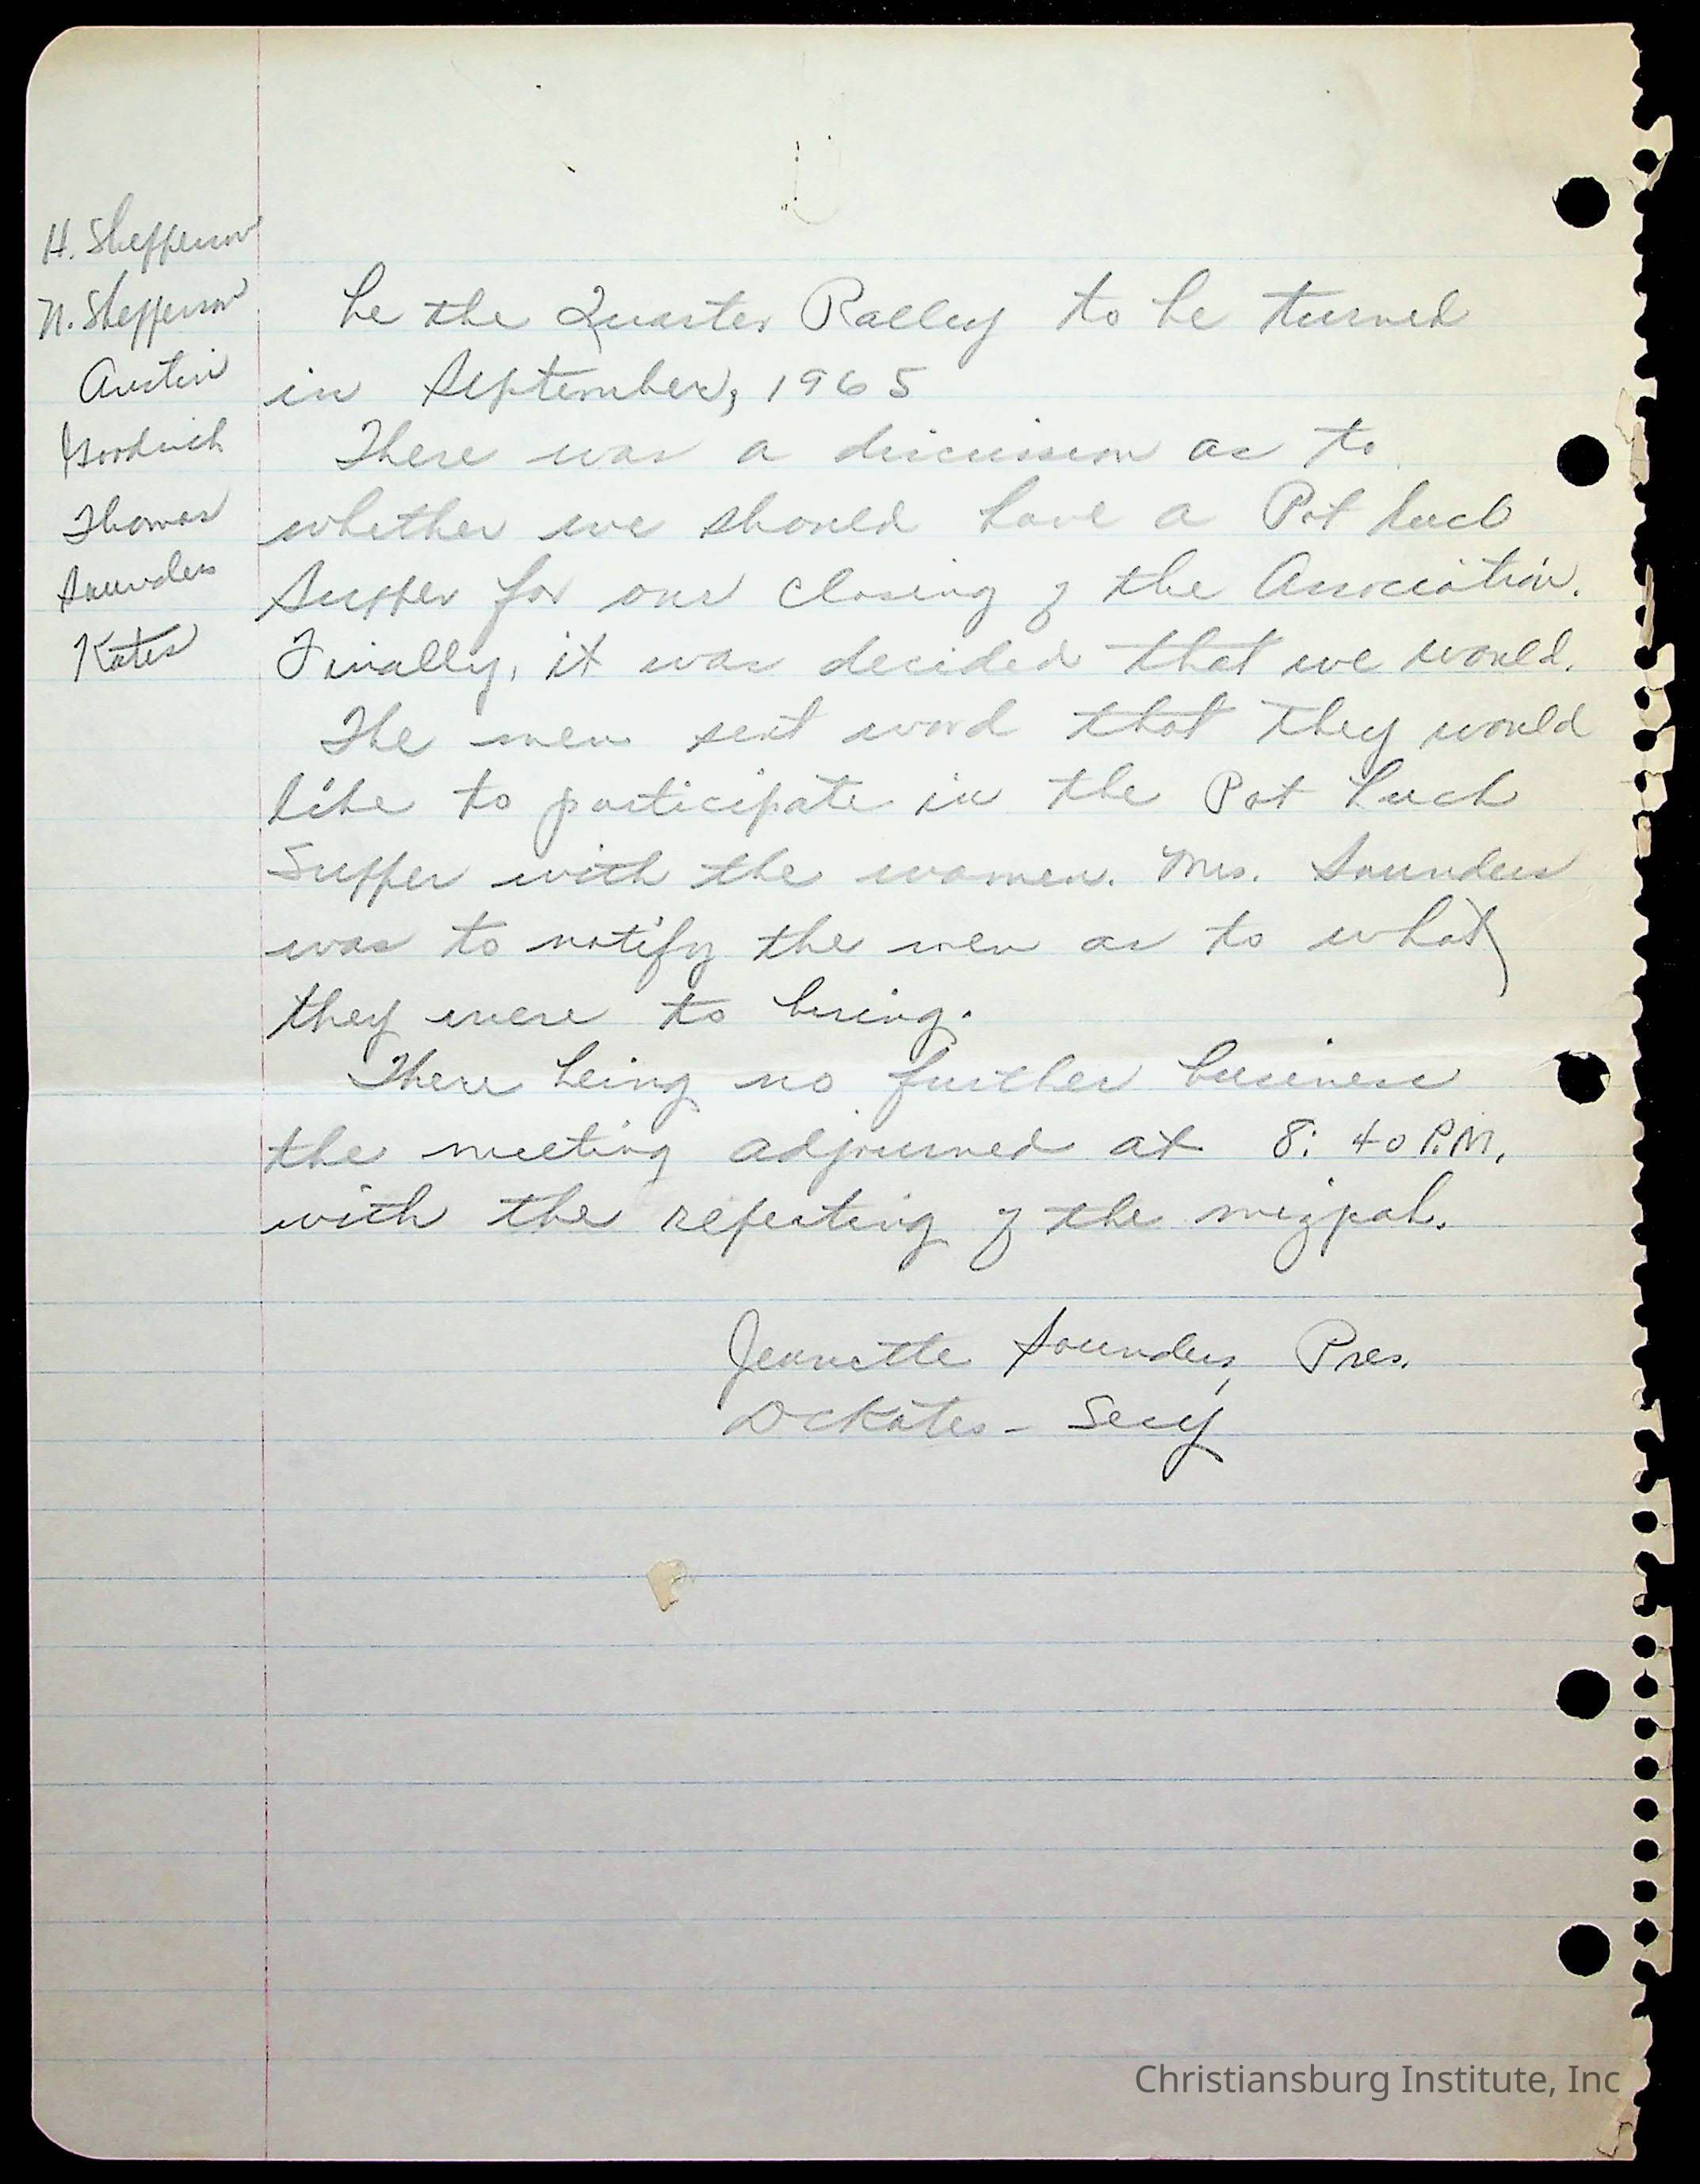 H. Shepperson
N. Shepperson
Austin
Goodrich
Thomas
Saunders
Kates
be the Quarter Ralley to be turned
in September, 1965
There was a discussion as to
whether we should have a Pot Luck
Supper for our closing of the Association.
Finally, it was decided that we would.
The men sent word that they would
like to participate in the Pot Luck
Supper with the women. Mrs. Saunders
was to notify the men as to what
they were to bring.
There being no further business
the meeting adjourned at 8:40 P.M.
with the repeating of the mizpah.
Jeanette Saunders, Pres.
DcKates - Secy
Christiansburg Institute, Inc